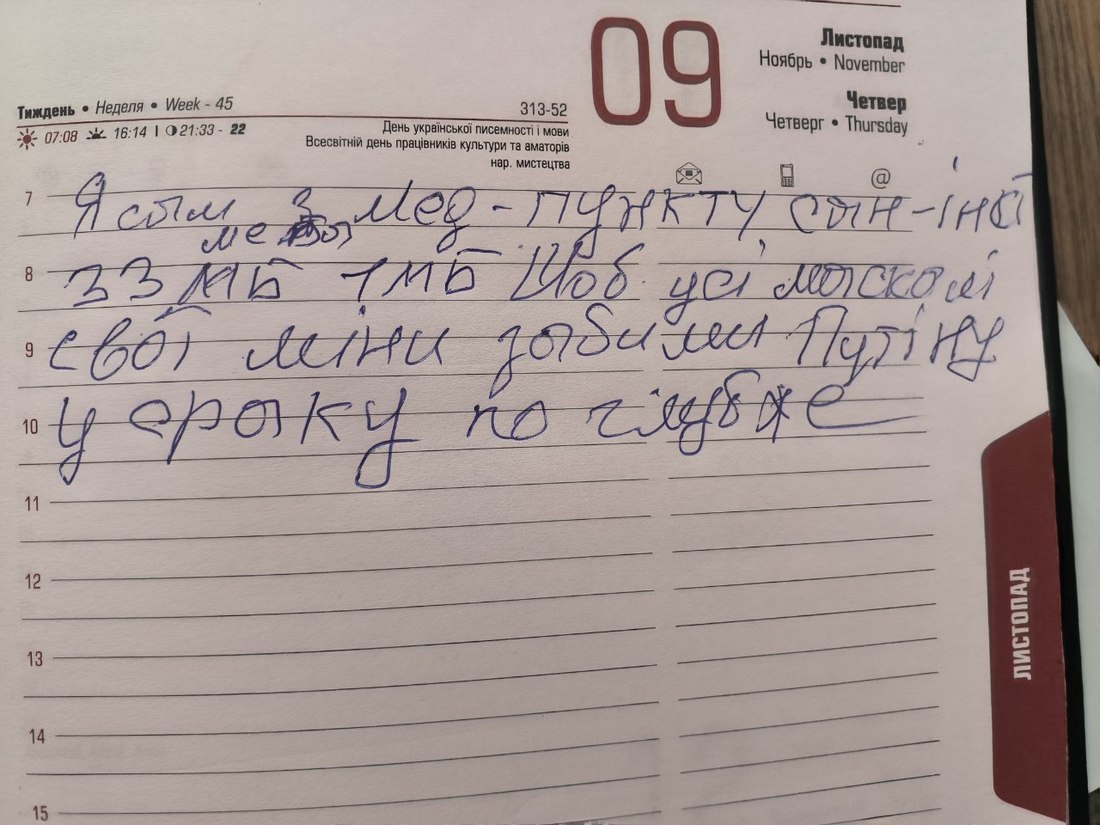 09
Листопад
Ноябрь • November
Четвер
Четверг • Thursday
Тиждень • Неделя • Week - 45
07:08 16:14 | 21:33 - 22
313-52
День української писемності і мови
Всесвітній день працівників культури та аматорів
нар. мистецтва
@
7 Я сам з Мед - пункту
8 33 МБ 1 МБ Щоб усі москалі
9 свої міни забили Путіну
10 у сраку по глубже
11
12
13
14
15
ЛИСТОПАД